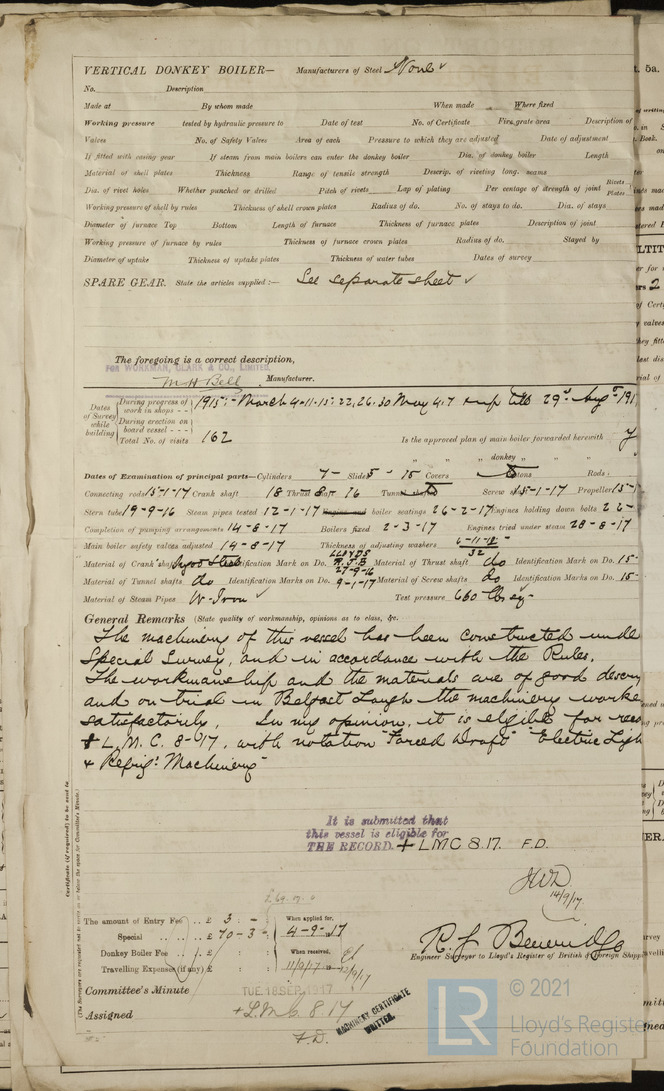 VERTICAL DONKEY BOILER— Manufacturers of Steel None ✓
No. Description
Made at By whom made When made Where fixed
Working pressure tested by hydraulic pressure to Date of test No. of Certificate Fire grate area Description of
Valves No. of Safety Valves Area of each Pressure to which they are adjusted Date of adjustment
If fitted with easing gear If steam from main boilers can enter the donkey boiler Dia. of donkey boiler Length
Material of shell plates Thickness Range of tensile strength Descrip. of riveting long. seams
Dia. of rivet holes Whether punched or drilled Pitch of rivets Lap of plating Per centage of strength of joint Rivets Plates
Working pressure of shell by rules Thickness of shell crown plates Radius of do. No. of stays to do. Dia. of stays
Diameter of furnace Top Bottom Length of furnace Thickness of furnace plates Description of joint
Working pressure of furnace by rules Thickness of furnace crown plates Radius of do. Stayed by
Diameter of uptake Thickness of uptake plates Thickness of water tubes Dates of survey
SPARE GEAR. State the articles supplied:— See separate sheet ✓
The foregoing is a correct description,
FOR WORKMAN, CLARK & CO., LIMITED.
M H Bell Manufacturer.
Dates of Survey while building
During progress of work in shops - - 1915:- March 4.11.15.22.26.30 May 4.7 till 29 Aug 191
During erection on board vessel - - -
Total No. of visits 162 Is the approved plan of main boiler forwarded herewith
" " " donkey " " "
Dates of Examination of principal parts—Cylinders Slides Covers Rods
Connecting rods 15-1-17 Crank shaft Thrust shaft Tunnel shafts Screw 15-1-17 Propeller 15-1
Stern tube 19-9-16 Steam pipes tested 12-1-17 Engine and boiler seatings 26-2-17 Engines holding down bolts
Completion of pumping arrangements 14-8-17 Boilers fixed 2-3-17 Engines tried under steam 28-8-17
Main boiler safety valves adjusted 14-8-17 Thickness of adjusting washers
Material of Crank shaft Ingot Steel Identification Mark on Do. LLOYDS 27-9-16 Material of Thrust shaft do Identification Mark on Do. 15-
Material of Tunnel shafts do Identification Marks on Do. 9-1-17 Material of Screw shafts do Identification Marks on Do. 15-
Material of Steam Pipes W. Iron ✓ Test pressure 660 lbs
General Remarks (State quality of workmanship, opinions as to class, &c.
The machinery of this vessel has been constructed unde
Special Survey, and in accordance with the Rules.
The workmanship and the materials are of good descri
and on trial in Belfast Lough the machinery worke
satisfactorily. In my opinion, it is eligible for reco
+ L.M.C. 8-17, with notation "Forced Draft" "Electric Ligh
& Refrig: Machinery"
It is submitted that
this vessel is eligible for
THE RECORD. + LMC 8.17. F.D.
14/9/17
Certificate (if required) to be sent to
(The Surveyors are requested not to write on or below the space for Committee's Minute.)
The amount of Entry Fee .. £ 3 : - : When applied for,
Special .. .. £ 70 - 3 - : 4-9-17
Donkey Boiler Fee .. £ : : When received,
Travelling Expenses (if any) £ : :
Engineer Surveyor to Lloyd's Register of British & Foreign Shipp
Committee's Minute TUE. 18 SEP. 1917
Assigned + L.M.C. 8.17
F.D.
MACHINERY CERTIFICATE
WRITTEN.
LR © 2021
Lloyd's Register
Foundation